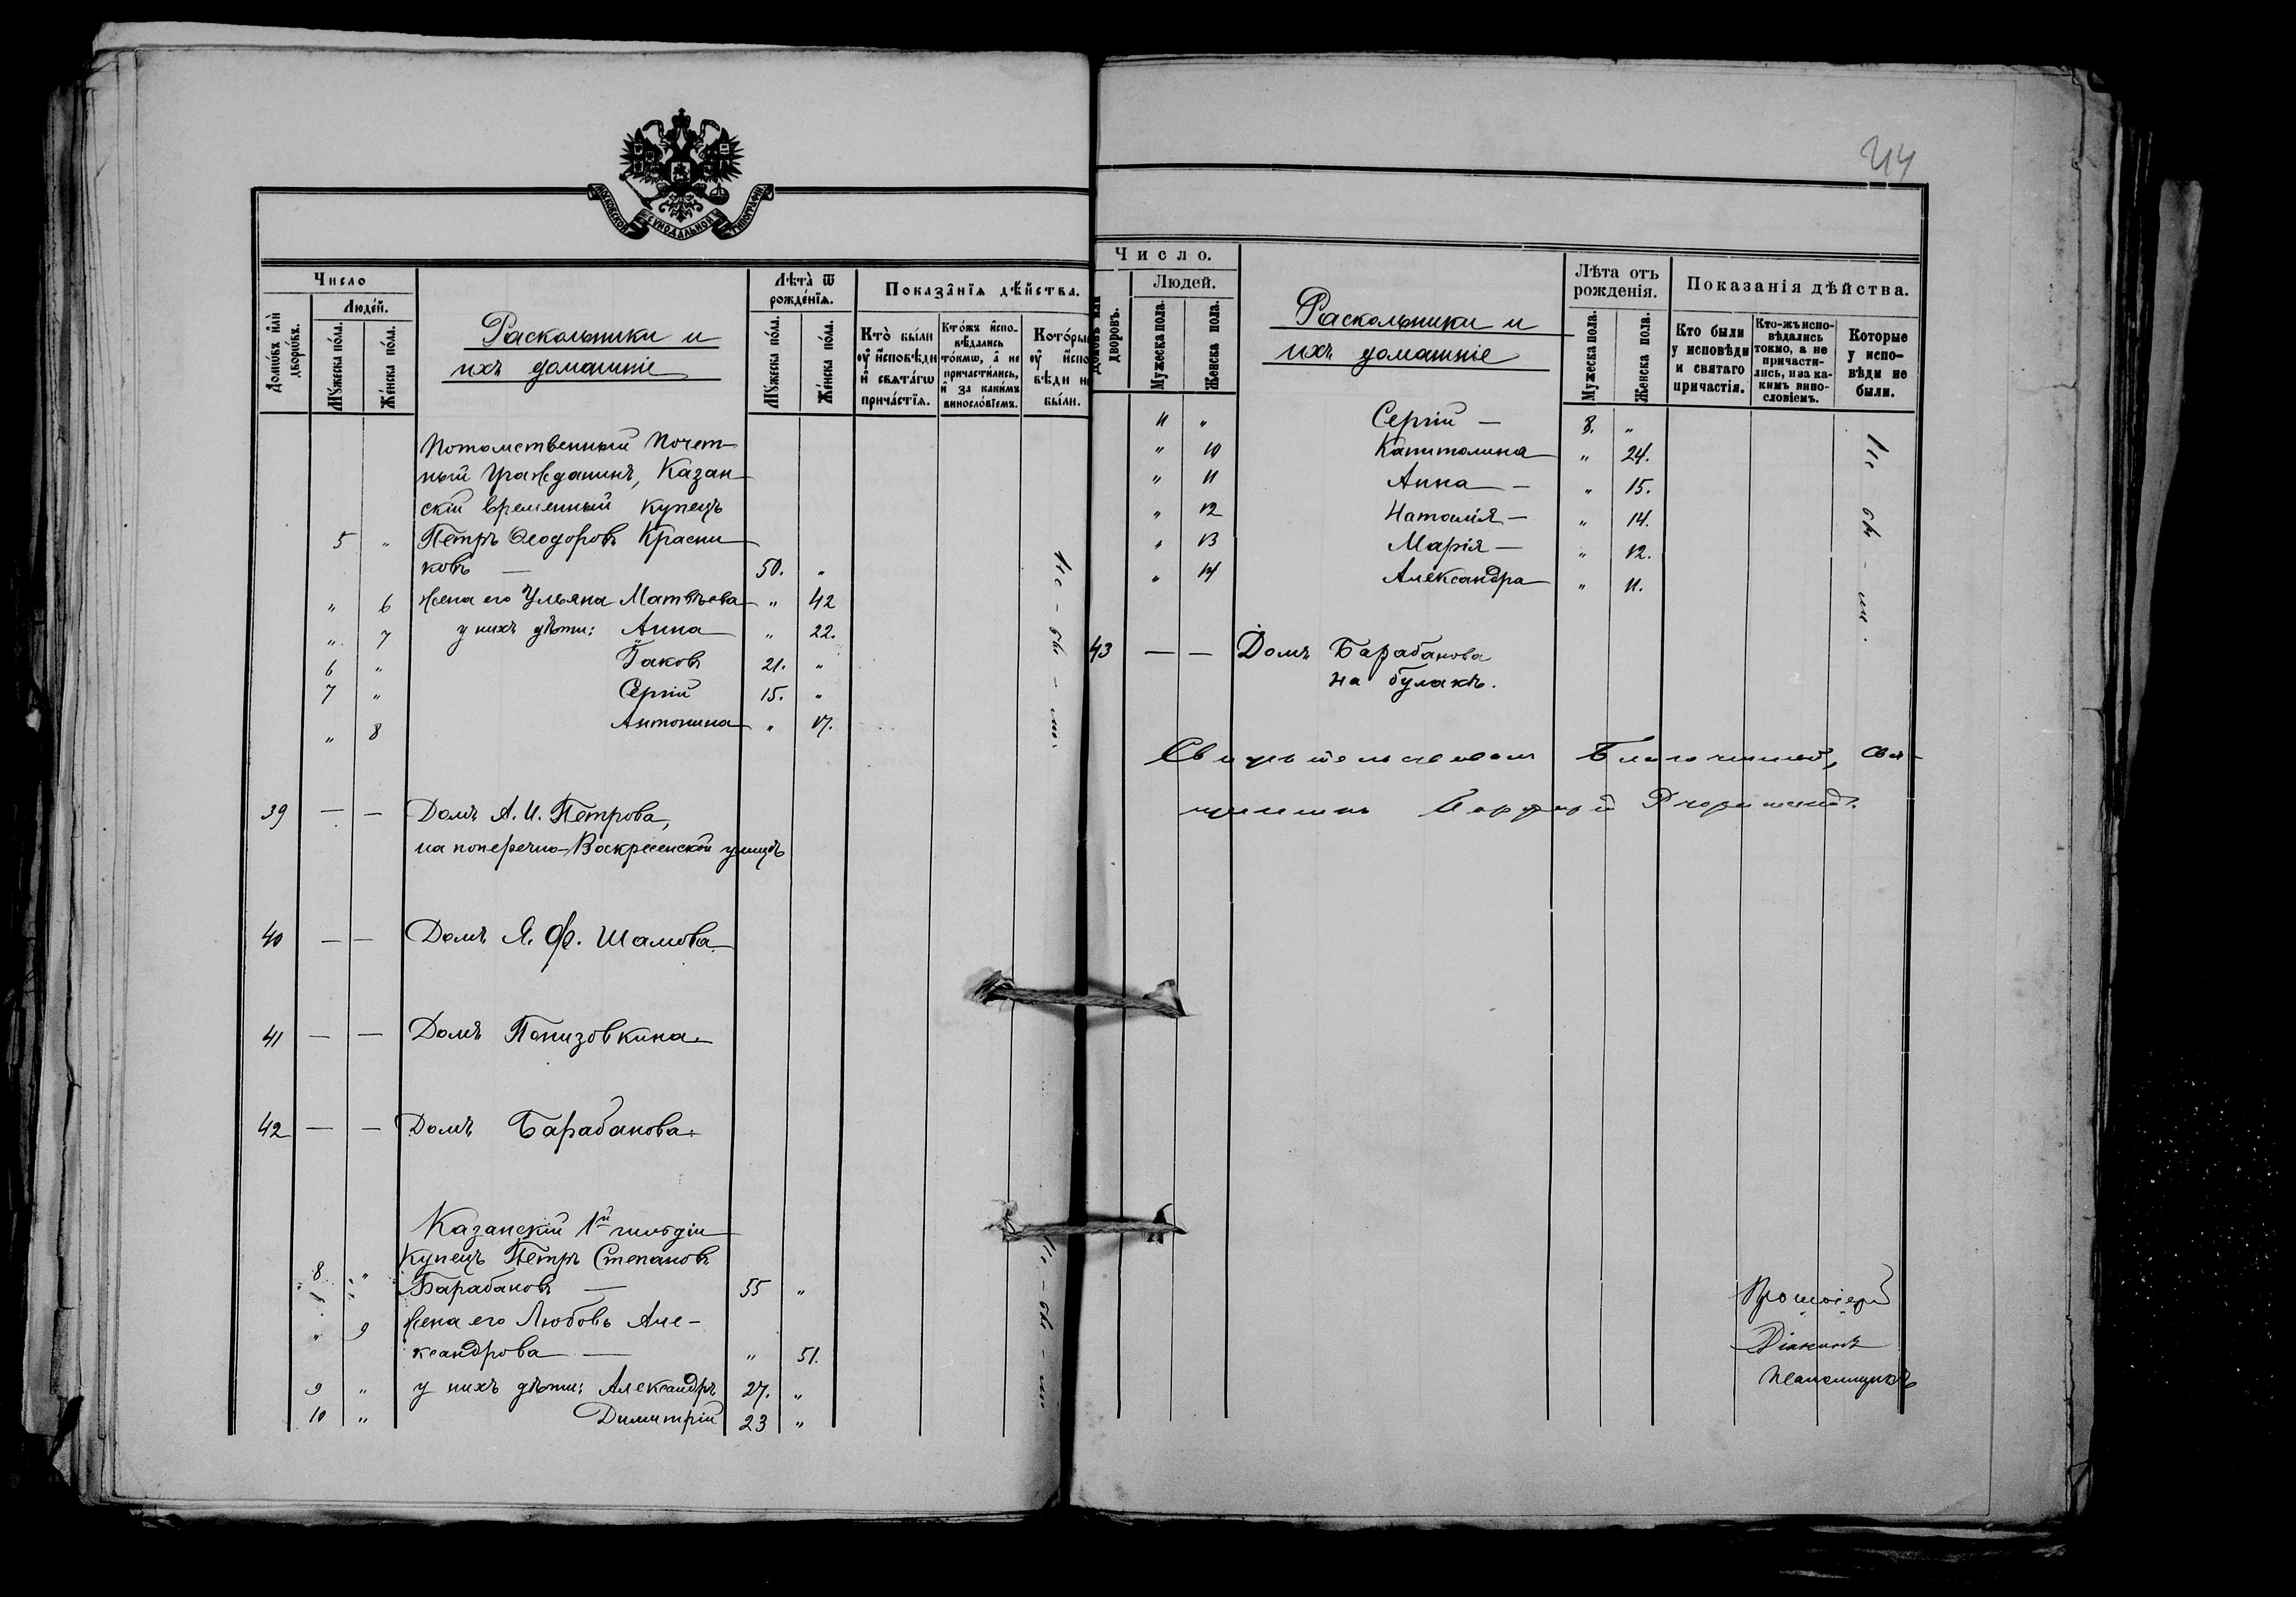 МОСКОВСКОЙ СУНОДАЛЬНОЙ ТИПОГРАФІИ
Число
Домѡвъ или дворѡвъ.
Людей.
Мужеска пола.
Женска пола.
Раскольники и
ихъ домашніе
Лѣта ѿ рожденія.
Мужеска пола.
Женска пола.
Показанія дѣйства.
Кто были у исповѣди и святагѡ причастія.
Ктожъ исповѣдались токмѡ, а не причастились, и за какимъ винословіемъ.
Которые у исповѣди не были.
Потомственный Почет-
ный Гражданинъ, Казан-
скій временный купецъ
5 „ Петръ Ѳеодоровъ Красни-
ковъ — 50. „
„ 6 Жена его Ульяна Матвѣева „ 42
„ 7 у нихъ дѣти: Анна „ 22.
6 „ Іаковъ 21. „
7 „ Сергій 15. „
„ 8 Антонина „ 17.
Не - бы - ли.
39 — — Домъ А. И. Петрова,
на поперечно-Воскресенской улицѣ
40 — — Домъ Я. Ф. Шамова.
41 — — Домъ Понизовкина.
42 — — Домъ Барабанова.
Казанскій 1й гильдіи
8 „ Купецъ Петръ Степановъ
Барабановъ — 55 „
„ 9 Жена его Любовь Але-
ксандрова — „ 51.
9 „ у нихъ дѣти: Александръ 27. „
10 „ Димитрій 23 „
Не - бы - ли
44
Число.
Домовъ или дворовъ.
Людей.
Мужеска пола.
Женска пола.
Раскольники и
ихъ домашніе
Лѣта отъ рожденія.
Мужеска пола.
Женска пола.
Показанія дѣйства.
Кто были у исповѣди и святаго причастія.
Кто-жъ исповѣдались токмо, а не причастились, и за какимъ винословіемъ.
Которые у исповѣди не были.
11 „ Сергій — 8. „
„ 10 Капитолина „ 24.
„ 11 Анна — „ 15.
„ 12 Наталія — „ 14.
„ 13 Марія — „ 12.
„ 14 Александра „ 11.
Не бы - ли.
43 — — Домъ Барабанова
на булакѣ.
Свидѣтельствовалъ Благочинный, Свя-
щенникъ
Протоіерей
Діаконъ
Псаломщикъ